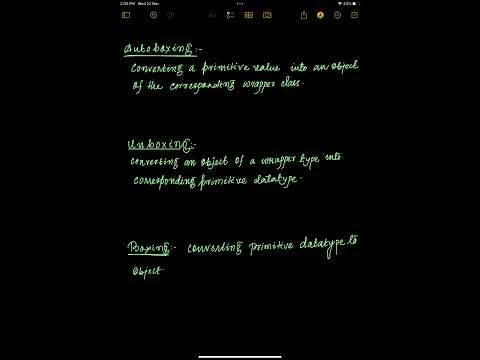 2:09 PM Wed 22 Nov
Autoboxing:-
Converting a primitive value into an object
of the corresponding wrapper class.
Unboxing:-
Converting an object of a wrapper type into
corresponding primitive datatype.
Boxing:- Converting primitive datatype to
object